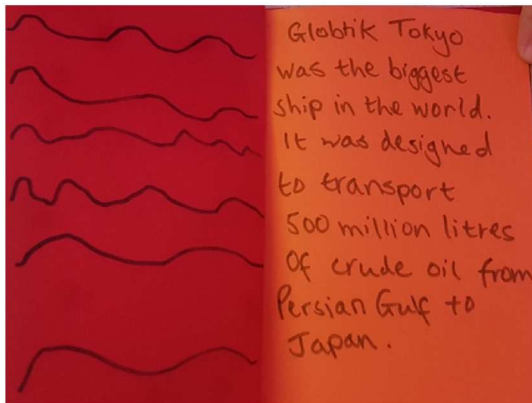 Globtik Tokyo
was the biggest
ship in the world.
It was designed
to transport
500 million litres
Of crude oil from
Persian Gulf to
Japan.